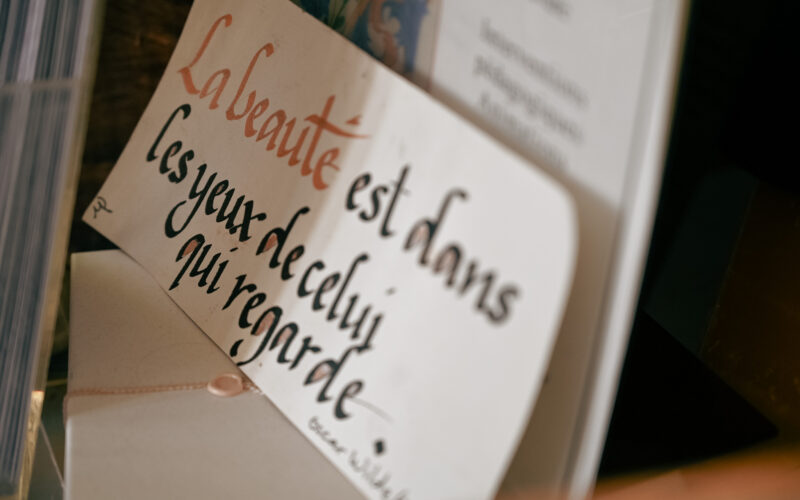 La beauté est dans
les yeux de celui
qui regarde.
Oscar Wilde
Interventions
pédagogiques